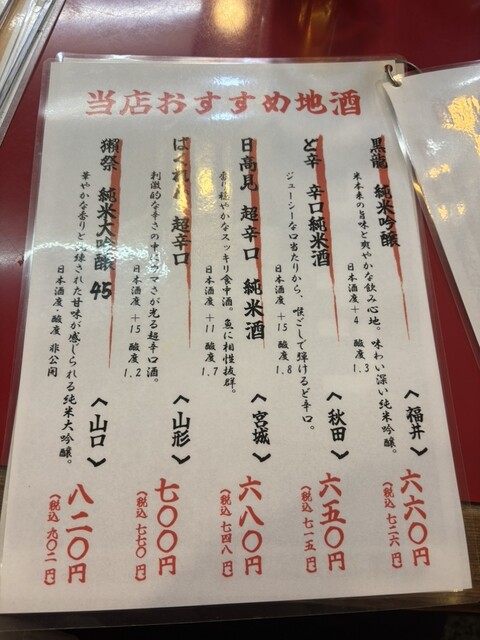 当店おすすめ地酒
黒龍 純米吟醸
米本来の旨味と爽やかな飲み心地。味わい深い純米吟醸。
日本酒度+4 酸度1.3
〈福井〉
六六〇円
(税込 七二六円)
ど辛 辛口純米酒
ジューシーな口当たりから、喉ごしで弾けるど辛口。
日本酒度+15 酸度1.8
〈秋田〉
六五〇円
(税込 七一五円)
日高見 超辛口 純米酒
香り穏やかなスッキリ食中酒。魚に相性抜群。
日本酒度+11 酸度1.7
〈宮城〉
六八〇円
(税込 七四八円)
ばくれん 超辛口
刺激的な辛さの中にウマさが光る超辛口酒。
日本酒度+15 酸度1.2
〈山形〉
七〇〇円
(税込 七七〇円)
獺祭 純米大吟醸 45
華やかな香りと洗練された甘味が感じられる純米大吟醸。
日本酒度・酸度 非公開
〈山口〉
八二〇円
(税込 九〇二円)